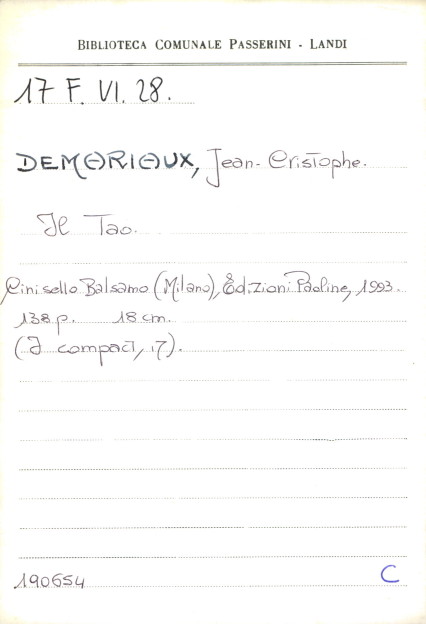 BIBLIOTECA COMUNALE PASSERINI - LANDI
17 F. VI. 28.
DEMARIAUX, Jean-Cristophe.
Il Tao.
Cinisello Balsamo (Milano), Edizioni Paoline, 1993.
138 p. 18 cm.
(I compact, 17).
190654 C